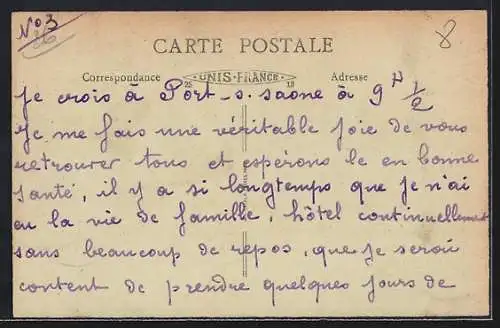 No 3
8
CARTE POSTALE
Correspondance UNIS-FRANCE Adresse
Je crois à Port-s. saone à 9H 1/2
Je me fais une véritable joie de vous
retrouver tous et espérons le en bonne
santé, il y a si longtemps que je n'ai
eu la vie de famille, hôtel continuellement
sans beaucoup de repos, que je serai
content de prendre quelques jours de